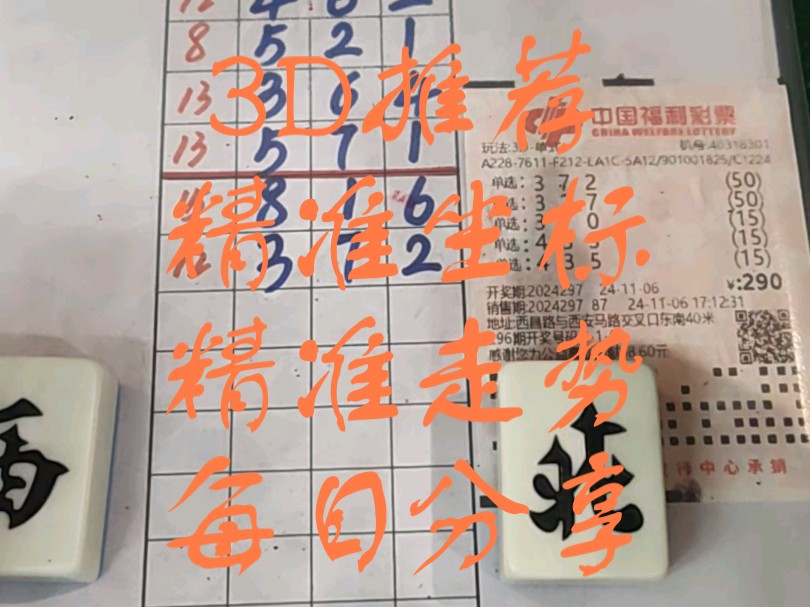 8 5 2 1
13 3 6 4
13 5 7 1
8 1 6
12 3 7 2
3D推荐
精准坐标
精准走势
每日分享
中国福利彩票
CHINA WELFARE LOTTERY
机号:40318301
A228-7611-F212-LA1C-5A12/901001825/C1224
单选: 3 7 2 (50)
单选: 3 7 (50)
单选: 3 0 (15)
单选: 4 (15)
单选: 3 5 (15)
¥:290
开奖期:2024297 24-11-06
销售期:2024297 87 24-11-06 17:12:31
地址:西昌路与西安马路交叉口东南40米
296期开奖号
感谢您为公 8.60元
中心承销